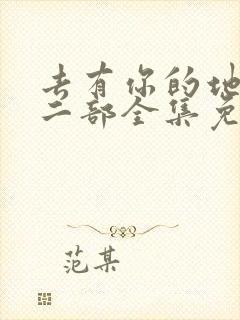 去有你的地
二部全集免
范某